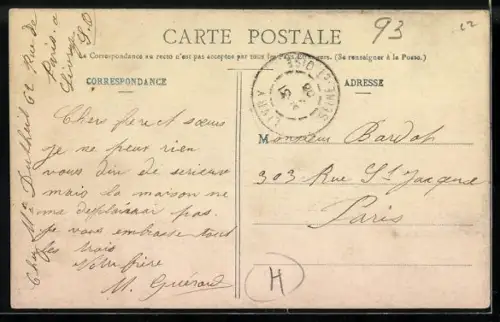 93
CARTE POSTALE
La Correspondance au recto n'est pas acceptée par tous les Etrangers. (Se renseigner à la Poste.)
CORRESPONDANCE
ADRESSE
LIVRY
SEINE-ET-OISE
Chers frère et sœurs
je ne peux rien
vous dire de serieux
mais la maison ne
me deplaisair pas.
je vous embrasse tout
les trois
Votre frère
M. Guérard
Chez Mme Dutheil 62 Rue de
Paris. a
Livry
S. O
Monsieur Bardot
303 Rue St Jacques
Paris
H